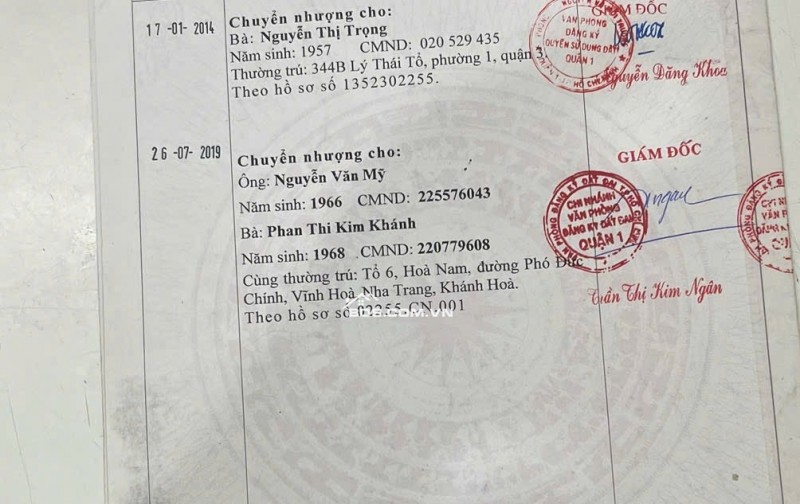 17-01-2014
Chuyển nhượng cho:
Bà: Nguyễn Thị Trọng
Năm sinh: 1957 CMND: 020 529 435
Thường trú: 344B Lý Thái Tổ, phường 1, quận 3.
Theo hồ sơ số 1352302255.
GIÁM ĐỐC
VĂN PHÒNG
ĐĂNG KÝ
QUYỀN SỬ DỤNG ĐẤT
QUẬN 1
Nguyễn Đăng Khoa
26-07-2019
Chuyển nhượng cho:
Ông: Nguyễn Văn Mỹ
Năm sinh: 1966 CMND: 225576043
Bà: Phan Thi Kim Khánh
Năm sinh: 1968 CMND: 220779608
Cùng thường trú: Tổ 6, Hoà Nam, đường Phó Đức
Chính, Vĩnh Hoà, Nha Trang, Khánh Hoà.
Theo hồ sơ số 02255.CN.001
GIÁM ĐỐC
VĂN PHÒNG ĐĂNG KÝ ĐẤT ĐAI TP.HỒ CHÍ MINH
CHI NHÁNH
VĂN PHÒNG
ĐĂNG KÝ ĐẤT ĐAI
QUẬN 1
Trần Thị Kim Ngân